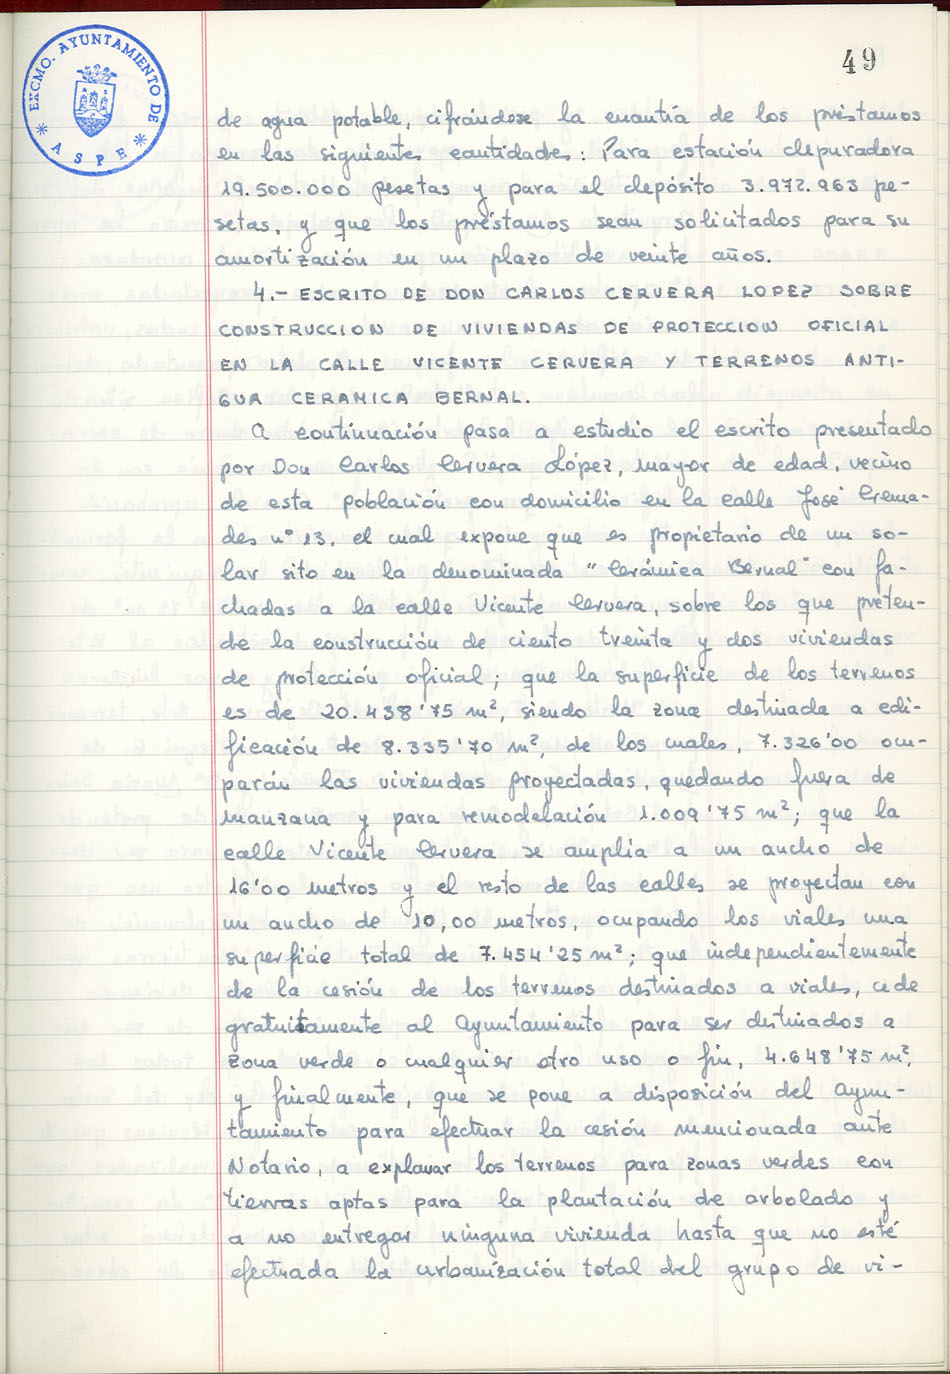 EXCMO. AYUNTAMIENTO DE
* ASPE *
49
de agua potable, cifrándose la cuantía de los préstamos
en las siguientes cantidades: Para estación depuradora
19.500.000 pesetas y para el depósito 3.972.963 pe-
setas, y que los préstamos sean solicitados para su
amortización en un plazo de veinte años.
4.- ESCRITO DE DON CARLOS CERVERA LOPEZ SOBRE
CONSTRUCCION DE VIVIENDAS DE PROTECCION OFICIAL
EN LA CALLE VICENTE CERVERA Y TERRENOS ANTI-
GUA CERAMICA BERNAL.
A continuación pasa a estudio el escrito presentado
por Don Carlos Cervera López, mayor de edad, vecino
de esta población con domicilio en la calle José Crema-
des nº 13, el cual expone que es propietario de un so-
lar sito en la denominada "Cerámica Bernal" con fa-
chadas a la calle Vicente Cervera, sobre los que preten-
de la construcción de ciento treinta y dos viviendas
de protección oficial; que la superficie de los terrenos
es de 20.438'75 m², siendo la zona destinada a edi-
ficación de 8.335'70 m², de los cuales, 7.326'00 ocu-
parán las viviendas proyectadas, quedando fuera de
manzana y para remodelación 1.009'75 m²; que la
calle Vicente Cervera se amplía a un ancho de
16'00 metros y el resto de las calles se proyectan con
un ancho de 10,00 metros, ocupando los viales una
superficie total de 7.454'25 m²; que independientemente
de la cesión de los terrenos destinados a viales, cede
gratuitamente al Ayuntamiento para ser destinados a
zona verde o cualquier otro uso o fin, 4.648'75 m²,
y finalmente, que se pone a disposición del Ayun-
tamiento para efectuar la cesión mencionada ante
Notario, a explanar los terrenos para zonas verdes con
tierras aptas para la plantación de arbolado y
a no entregar ninguna vivienda hasta que no esté
efectuada la urbanización total del grupo de vi-